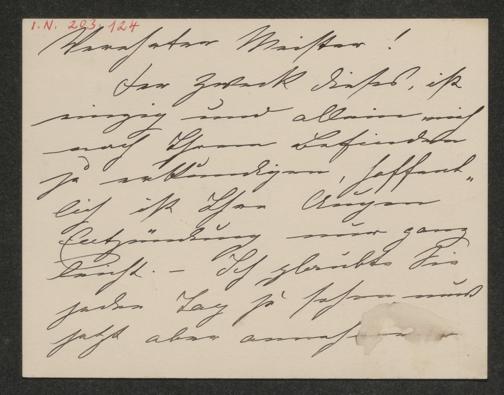 I.N. 203.124
Verehrter Meister!
Der Zweck dieses, ist
einzig und allein mich
nach Ihrem Befinden
zu erkundigen, hoffent„
lich ist Ihre Augen
Entzündung nur ganz
leicht. – Ich glaubte Sie
jeden Tag zu sehen muß
jetzt aber